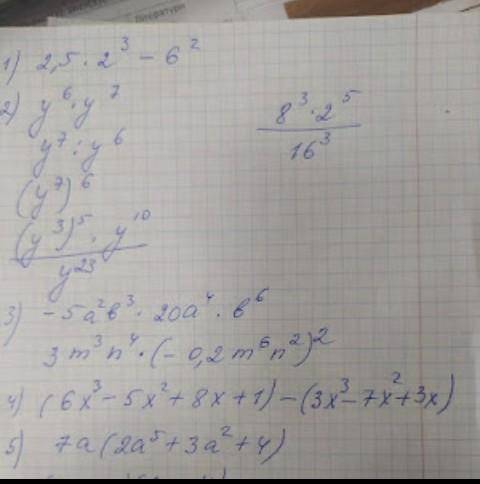 литератури
1) 2,5 · 2³ - 6²
2) y⁶ · y⁷
y⁷ : y⁶
(y⁷)⁶
(y³)⁵ · y¹⁰
y²³
8³ · 2⁵
16³
3) -5a²b³ · 20a⁴ · b⁶
3m³n⁴ · (-0,2m⁶n²)²
4) (6x³ - 5x² + 8x + 1) - (3x³ - 7x² + 3x)
5) 7a(2a⁵ + 3a² + 4)